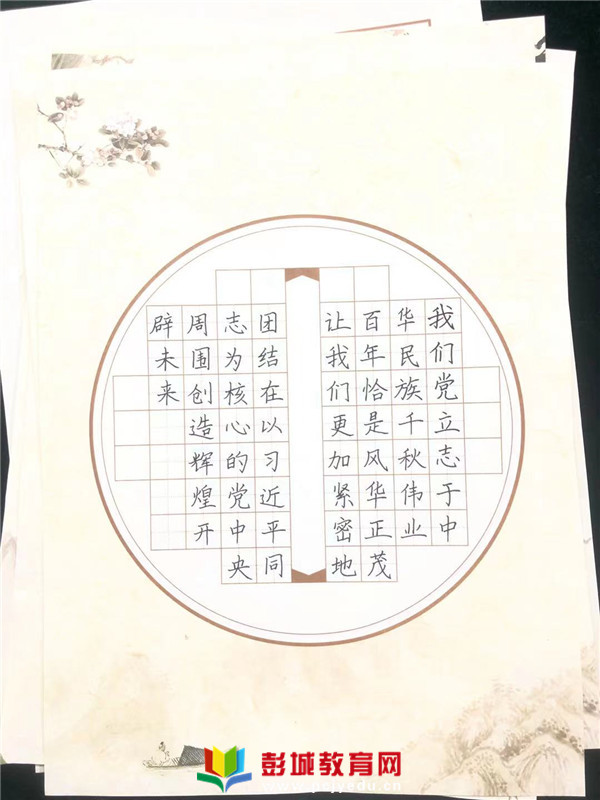 我们党立志于中
华民族千秋伟业
百年恰是风华正茂
让我们更加紧密地
团结在以习近平同
志为核心的党中央
周围创造辉煌开
辟未来
彭城教育网